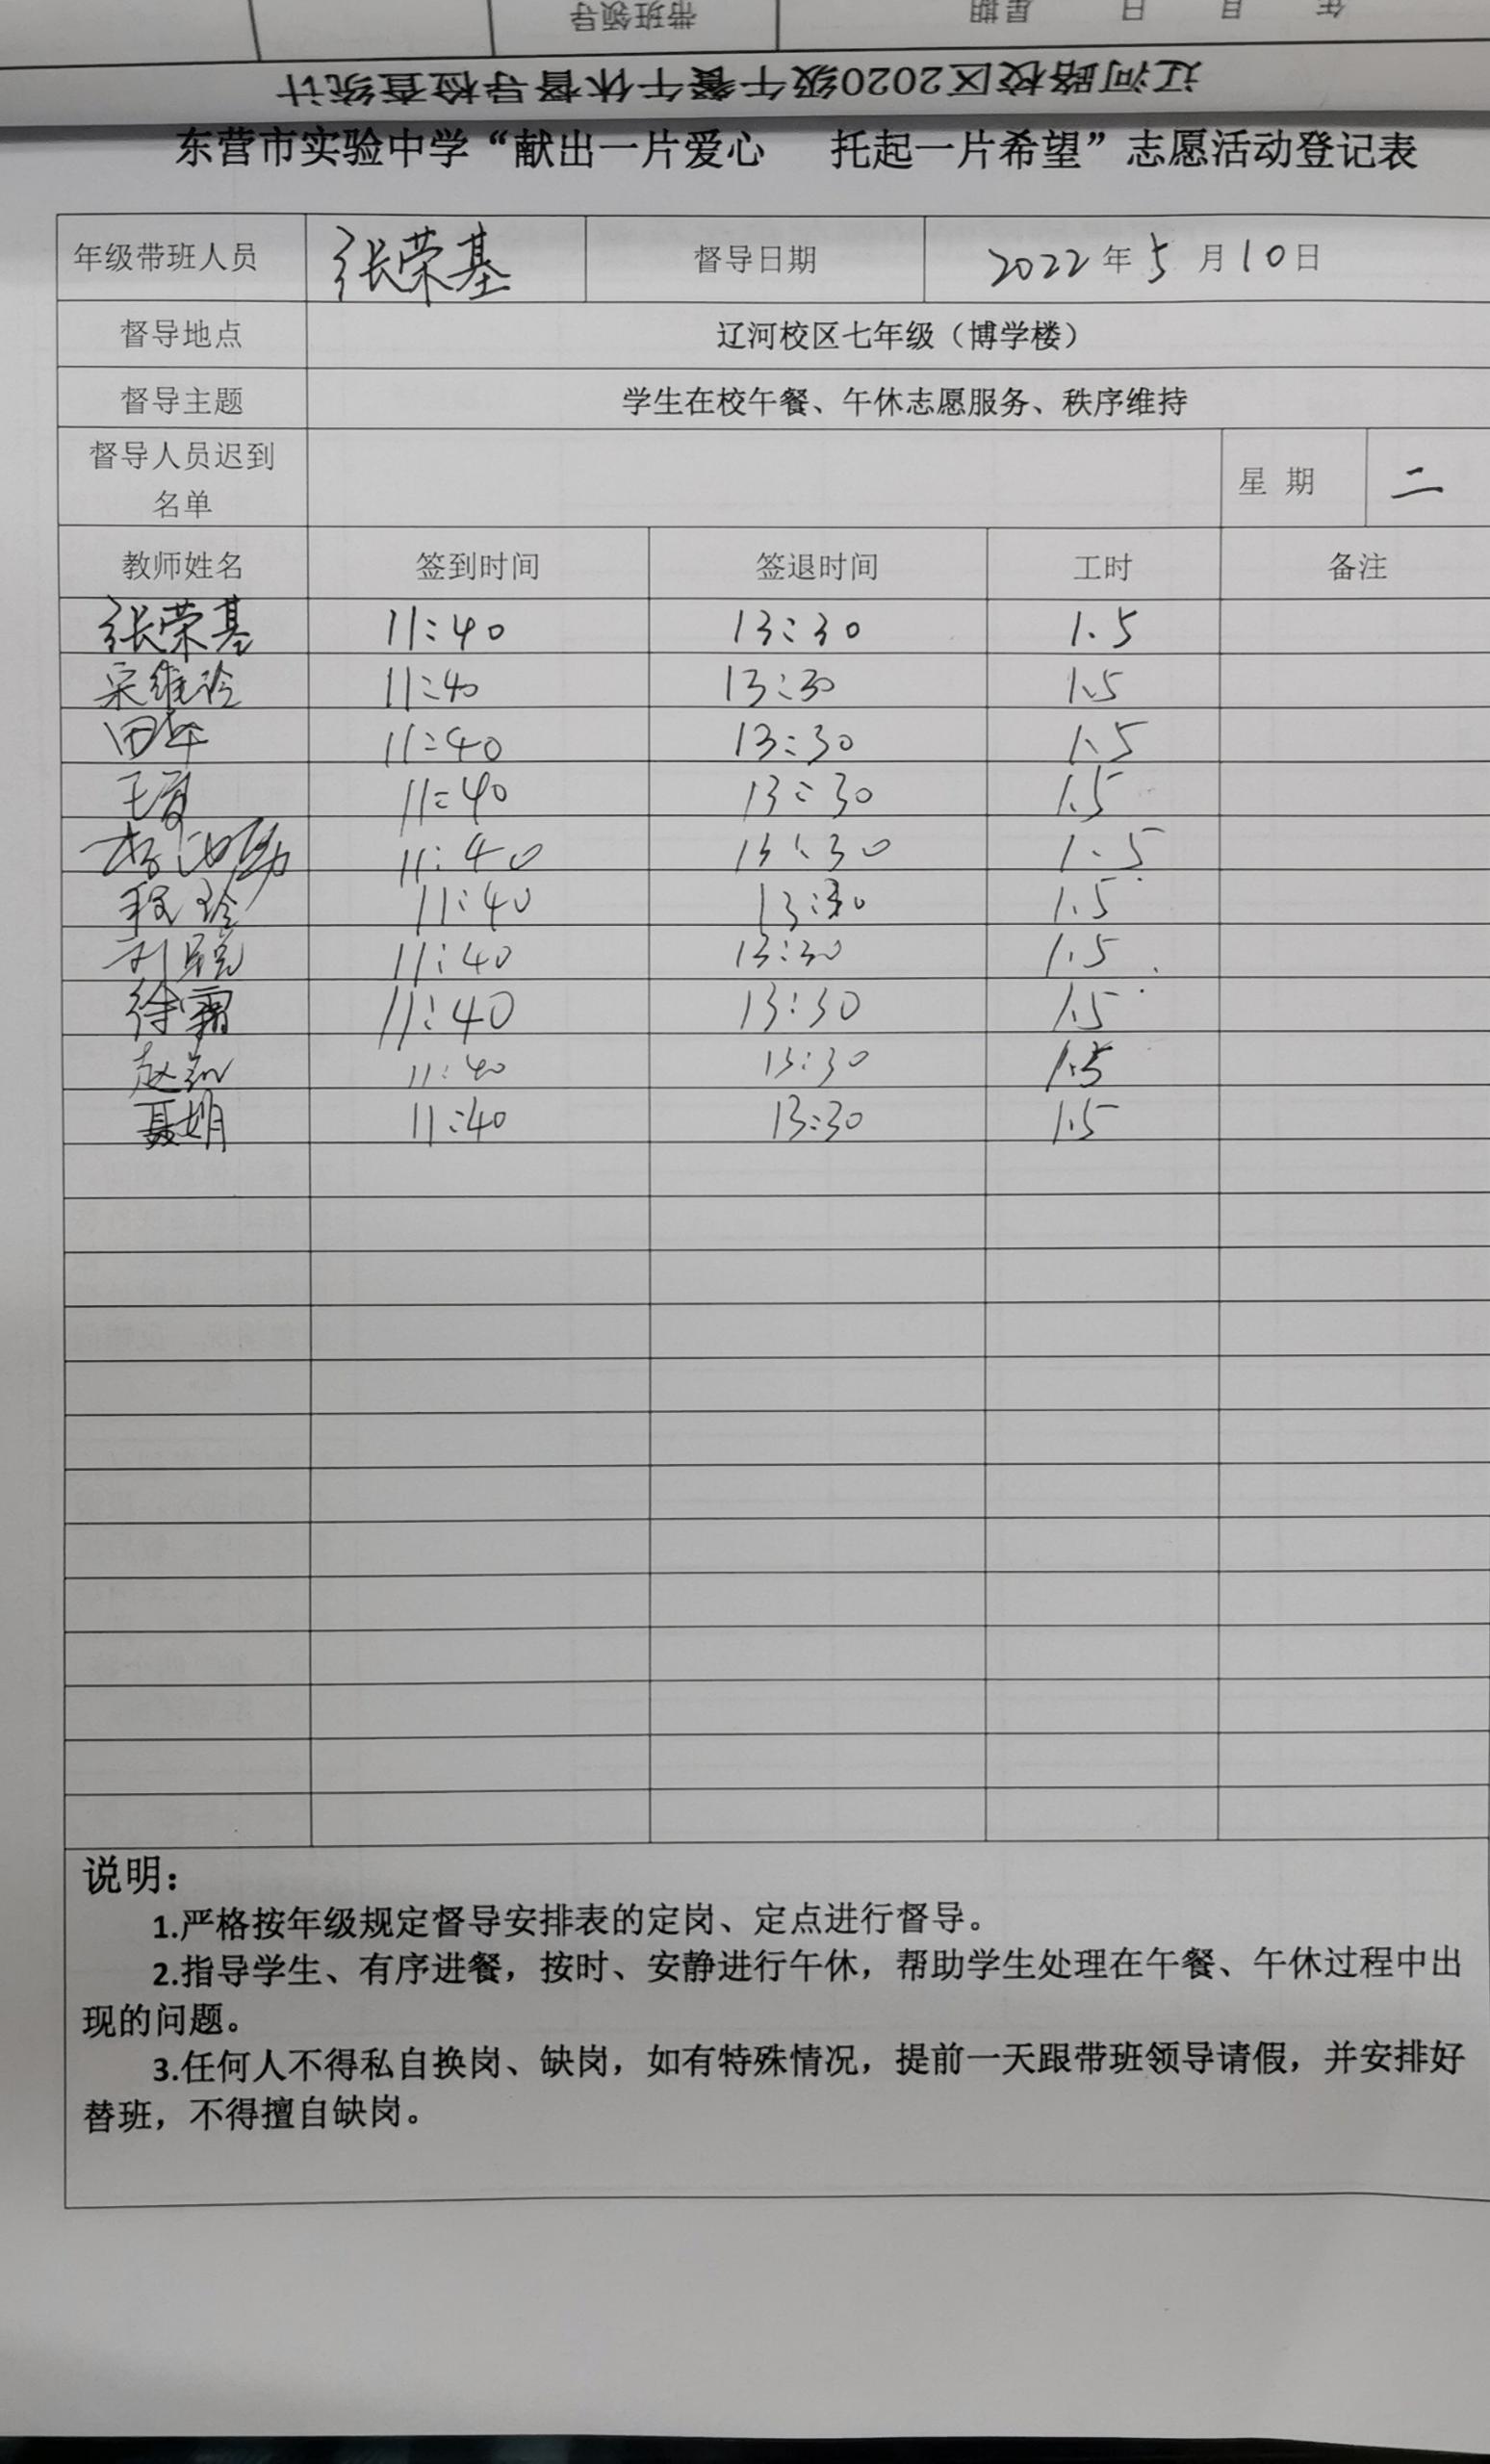 年 月 日 星期 带班领导
辽河路校区2020级午餐午休督导检查统计
东营市实验中学“献出一片爱心 托起一片希望”志愿活动登记表
年级带班人员 张荣基 督导日期 2022年5月10日
督导地点 辽河校区七年级（博学楼）
督导主题 学生在校午餐、午休志愿服务、秩序维持
督导人员迟到
名单 星期 二
教师姓名 签到时间 签退时间 工时 备注
张荣基 11:40 13:30 1.5
宋维玲 11:40 13:30 1.5
田 11:40 13:30 1.5
王夏 11:40 13:30 1.5
11:40 13:30 1.5
程玲 11:40 13:30 1.5
刘 11:40 13:30 1.5
徐霜 11:40 13:30 1.5
赵 11:40 13:30 1.5
聂娟 11:40 13:30 1.5
说明：
1.严格按年级规定督导安排表的定岗、定点进行督导。
2.指导学生、有序进餐，按时、安静进行午休，帮助学生处理在午餐、午休过程中出
现的问题。
3.任何人不得私自换岗、缺岗，如有特殊情况，提前一天跟带班领导请假，并安排好
替班，不得擅自缺岗。